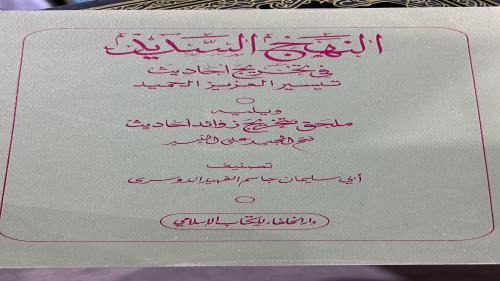 النهج السديد
في تخريج أحاديث
تيسير العزيز الحميد
ويليه
ملحق بتخريج زوائد أحاديث
فتح المجيد على التيسير
تصنيف
أبي سليمان جاسم الفهيد الدوسري
دار الخلفاء للكتاب الإسلامي